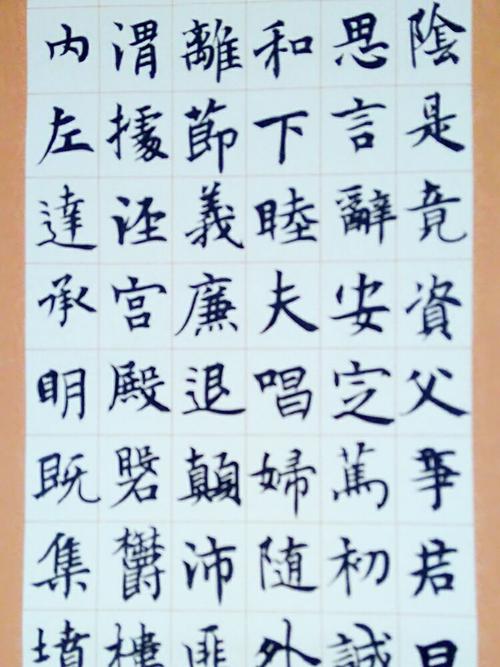 陰是竟資父事君曰
思言辭安定篤初誠
和下睦夫唱婦随外
離節義廉退顛沛匪
渭據泾宫殿磐鬱樓
内左達承明既集墳